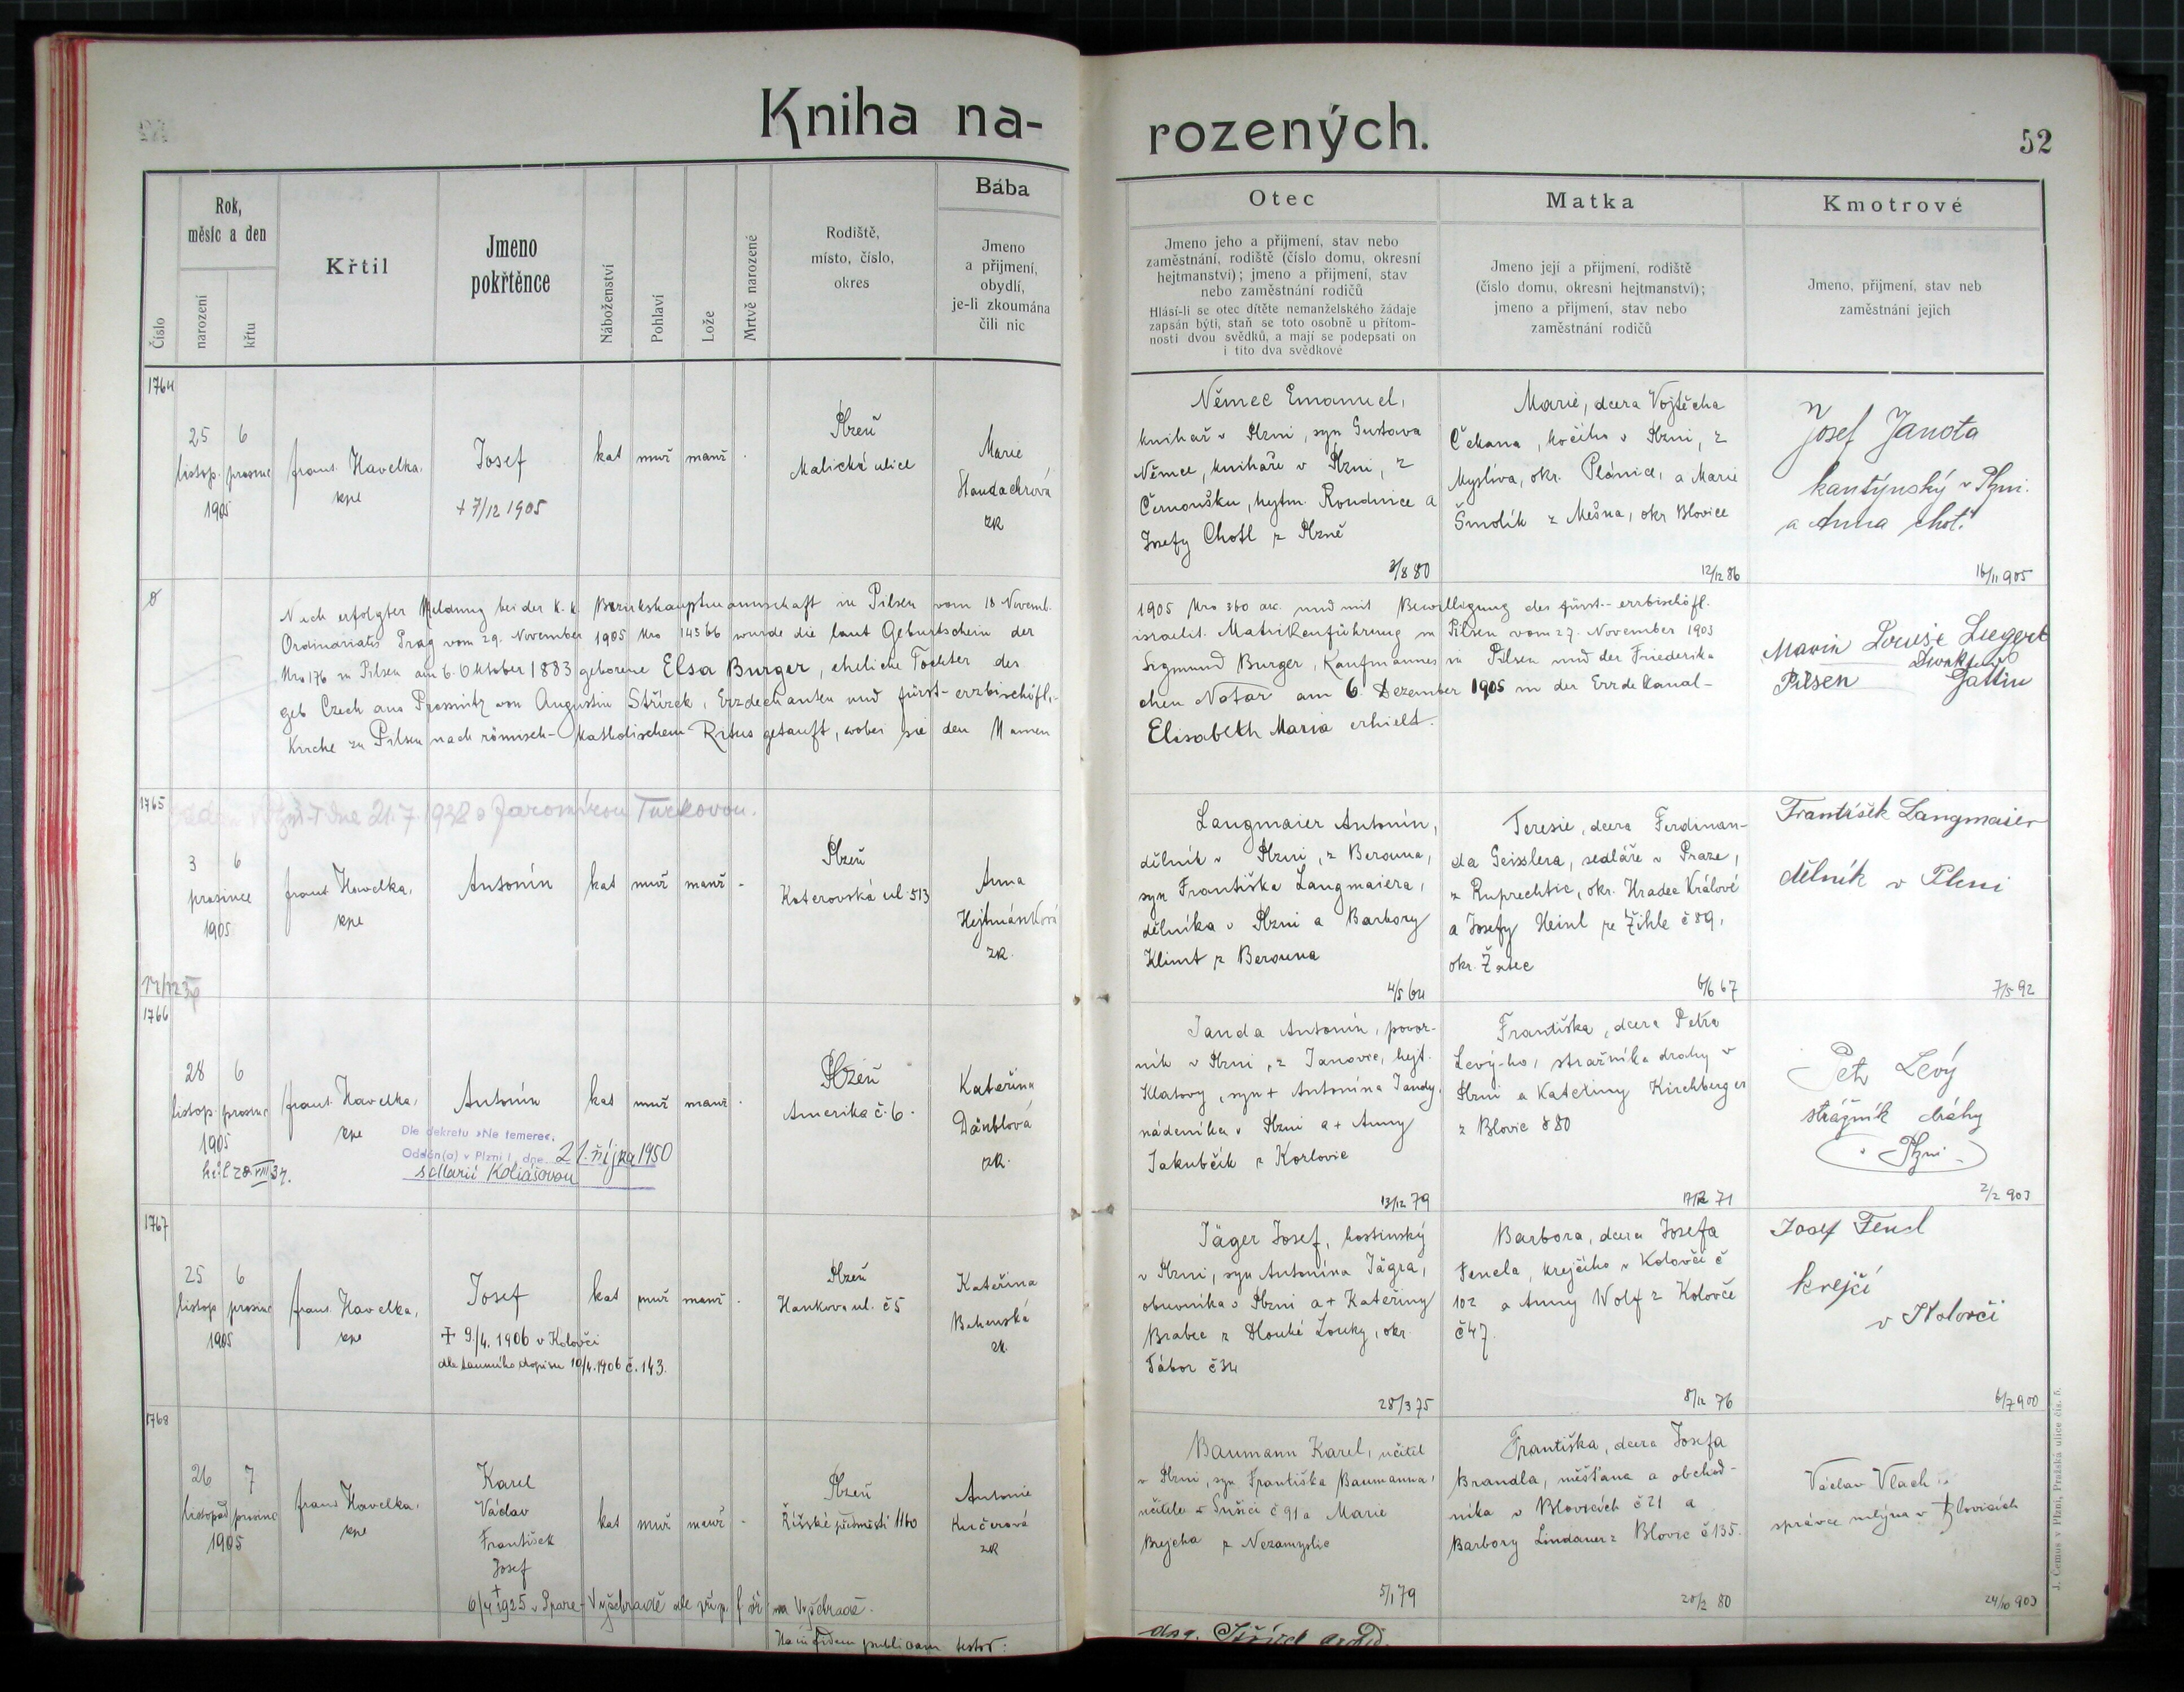 Kniha na-
rozených.
52
Číslo
Rok,
měsíc a den
narození
křtu
Křtil
Jmeno
pokřtěnce
Náboženství
Pohlaví
Lože
Mrtvě narozené
Rodiště,
místo, číslo,
okres
Bába
Jmeno
a přijmení,
obydlí,
je-li zkoumána
čili nic
Otec
Jmeno jeho a přijmení, stav nebo
zaměstnání, rodiště (číslo domu, okresní
hejtmanství); jmeno a přijmení, stav
nebo zaměstnání rodičů
Hlásí-li se otec dítěte nemanželského žádaje
zapsán býti, staň se toto osobně u přítom-
nosti dvou svědků, a mají se podepsati on
i tito dva svědkové
Matka
Jmeno její a přijmení, rodiště
(číslo domu, okresní hejtmanství);
jmeno a přijmení, stav nebo
zaměstnání rodičů
Kmotrové
Jmeno, přijmení, stav neb
zaměstnání jejich
1764
25 6
listop. prosince
1905
frant. Havelka,
kpl
Josef
+ 7/12 1905
kat muž manž .
Plzeň
Malická ulice
Marie
zk
Němec Emanuel,
knihař v Plzni, syn Gustava
Němce, knihaře v Plzni, z
Černoušku, hejtm. Roudnice a
Josefy Chotl z Plzně
3/8 80
Marie, dcera Vojtěcha
Čekana, kočího v Plzni, z
Myslíva, okr. Plánice, a Marie
Šmolík z Mešna, okr Blovice
12/12 86
Josef Janota
kantýnský v Plzni.
a Anna choť.
16/11 905
Nach erfolgter Meldung bei der k. k. Bezirkshauptmannschaft in Pilsen vom 18 Novemb.
1905 Nro 360 und mit Bewilligung des fürst-erzbischöfl.
Ordinariats Prag vom 29. November 1905 Nro 14566 wurde die laut Geburtschein der
israelit. Matrikenführung in Pilsen vom 27. November 1905
Nro 176 in Pilsen am 6. Oktober 1883 geborene Elsa Burger, eheliche Tochter des
Sigmund Burger, Kaufmannes in Pilsen und der Friederika
geb Czech aus Prossnitz von Augustin Střízek, Erzdechanten und fürst-erzbischöfli-
chen Notar am 6. Dezember 1905 in der Erzdekanal-
Kirche zu Pilsen nach römisch-katholischem Ritus getauft, wobei sie den Namen
Elisabeth Maria erhielt.
Marie Louise
Gattin
Pilsen
1765
dne 21.7.1928 s Jaromírou Turkovou.
3 6
prosince
1905
frant Havelka,
kpl
Antonín
kat muž manž .
Plzeň
Koterovská ul. 513
Anna
Hejtmánková
zk.
Langmaier Antonín,
dělník v Plzni, z Berouna,
syn Františka Langmaiera,
dělníka v Plzni a Barbory
Klimt z Berouna
4/5 64
Teresie, dcera Ferdinan-
da Geisslera, sedláře v Praze,
z Ruprechtic, okr. Hradec Králové
a Josefy Heinl ze Žihle č 89,
okr. Žatec
6/6 67
František Langmaier
dělník v Plzni
7/5 92
1766
28 6
listop. prosince
1905
frant. Havelka,
kpl
Antonín
Dle dekretu »Ne temere«,
Oddán(a) v Plzni I, dne 21. října 1950
s Marií Koliášovou
kat muž manž .
Plzeň
Amerika č. 6.
Kateřina
Däublová
zk.
Janda Antonín, povoz-
ník v Plzni, z Janovic, hejt.
Klatovy, syn + Antonína Jandy,
nádeníka v Plzni a + Anny
Jakubčík z Kozlovic
13/12 79
Františka, dcera Petra
Levý-ho, strážníka drahy v
Plzni a Kateřiny Kirchberger
z Blovic č 80
17/12 71
Petr Levý
strážník dráhy
v Plzni
2/2 903
1767
25 6
listop prosince
1905
frant. Havelka,
kpl
Josef
+ 9./4. 1906 v Koloveči
dle tamního dopisu 10/4. 1906 č. 143.
kat muž manž .
Plzeň
Hankova ul. č 5
Kateřina
zk.
Jäger Josef, hostinský
v Plzni, syn Antonína Jägra,
obuvníka v Plzni a + Kateřiny
Brabec z Dlouhé Louky, okr.
Tábor č 34
28/3 75
Barbora, dcera Josefa
Fencla, krejčího v Kolovči č
102 a Anny Wolf z Kolovče
č 47.
8/12 76
Josef Fencl
krejčí
v Kolovči
6/7 900
1768
26 7
listopad prosinc
1905
frant Havelka,
kpl
Karel
Václav
František
Josef
kat muž manž .
Plzeň
Říšské předměstí 1160
Antonie
Kučerová
zk
Baumann Karel, učitel
v Plzni, syn Františka Baumanna,
učitele v Sušici č 91 a Marie
Brejcha z Nezamyslic
5/1 79
Františka, dcera Josefa
Brandla, měšťana a obchod-
níka v Blovicích č 21 a
Barbory Lindauer z Blovic č 135.
20/2 80
Václav Vlach
správce mlýna v Blovicích
24/10 903
+
6/4 1925 v Praze-Vyšehradě dle příp. f. úř. na Vyšehradě.
Ham fidem publicam testor:
J. Cemus v Plzni, Pražská ulice čís. 5.